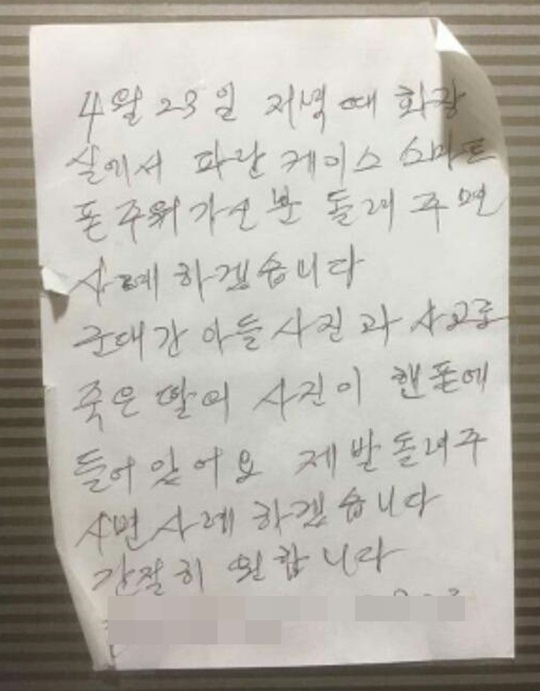 4월 23일 저녁때 화장
실에서 파란 케이스 스마트
폰 주워가신분 돌려주면
사례하겠습니다
군대간 아들사진과 사고로
죽은 딸의 사진이 핸폰에
들어있어요 제발돌려주
시면사례하겠습니다
간절히 원합니다